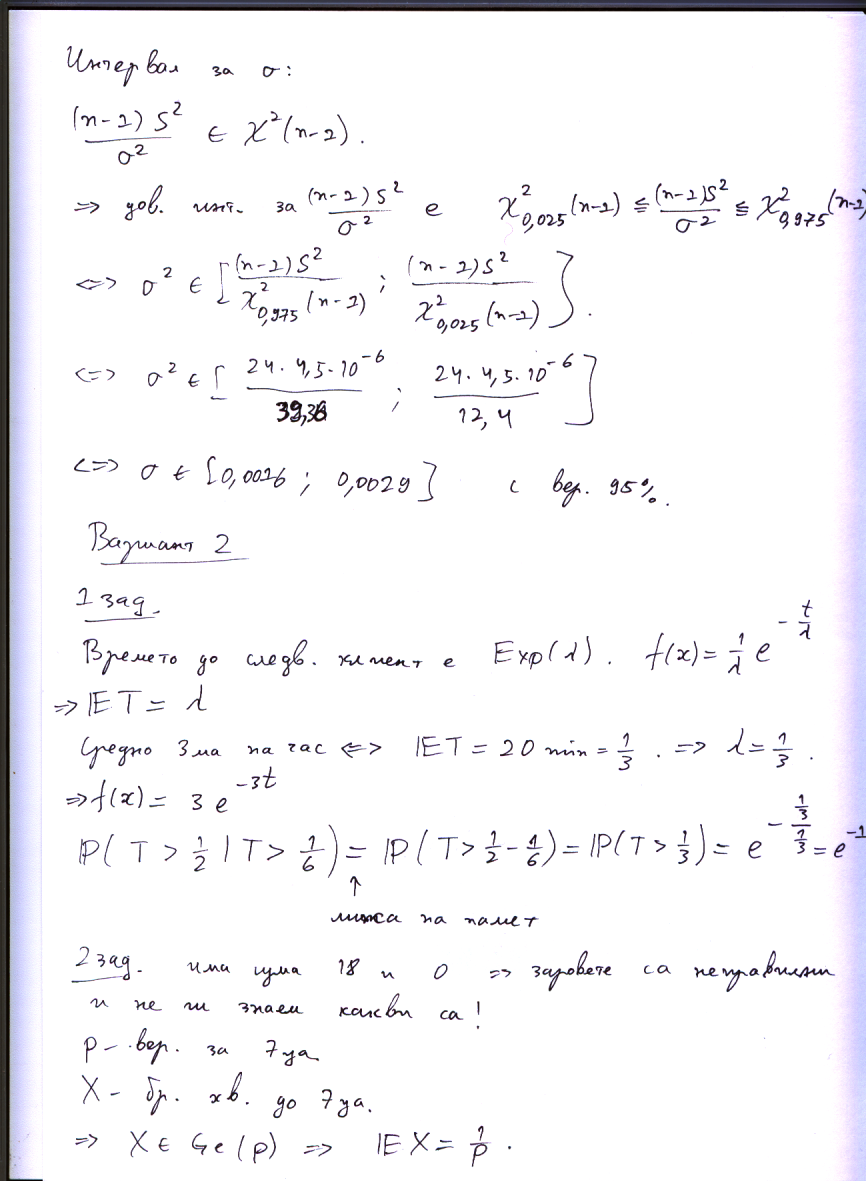 Интервал за σ:
(n-1) S² / σ² ∈ χ²(n-1).
⇒ дов. инт. за (n-1) S² / σ² е χ²_{0,025}(n-1) ≤ (n-1)S² / σ² ≤ χ²_{0,975}(n-1)
⇔ σ² ∈ [(n-1)S² / χ²_{0,975}(n-1) ; (n-1)S² / χ²_{0,025}(n-1)].
⇔ σ² ∈ [24. 4,5. 10⁻⁶ / 39,36 ; 24. 4,5. 10⁻⁶ / 12,4]
⇔ σ ∈ [0,0016 ; 0,0029] с вер. 95%.
Вариант 2
1 зад.
Времето до следв. клиент е Exp(λ). f(x) = 1/λ e^{-t/λ}
⇒ ET = λ
Средно 3ма на час ⇔ ET = 20 min = 1/3 . ⇒ λ = 1/3 .
⇒ f(x) = 3 e^{-3t}
P( T > 1/2 | T > 1/6 ) = P( T > 1/2 - 1/6 ) = P( T > 1/3 ) = e^{-(1/3)/(1/3)} = e⁻¹
↑
липса на памет
2 зад. има сума 18 и 0 ⇒ заровете са неправилни
и не ги знаем какви са!
p - вер. за 7ца
X - бр. хв. до 7ца.
⇒ X ∈ Ge(p) ⇒ EX = 1/p .